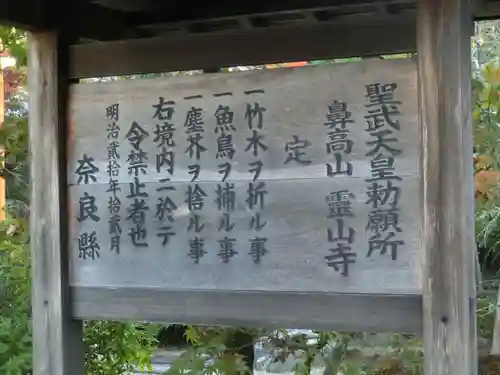 聖武天皇勅願所
鼻高山 霊山寺
定
一竹木ヲ折ル事
一魚鳥ヲ捕ル事
一塵芥ヲ捨ル事
右境内ニ於テ
令禁止者也
明治貳拾年拾貳月
奈良縣